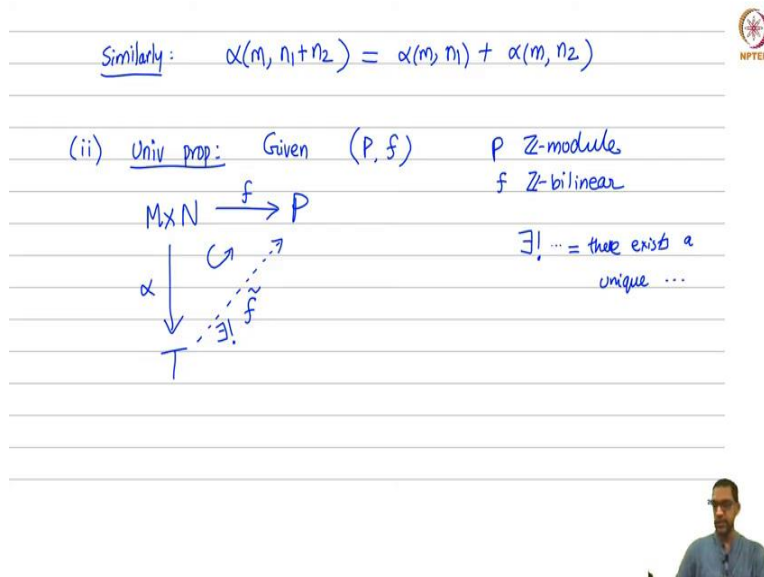 Similarly: α(m, n₁+n₂) = α(m, n₁) + α(m, n₂)
NPTEL
(ii) Univ prop: Given (P, f) P ℤ-module
f ℤ-bilinear
M×N f P
∃! ... = there exists a
unique ...
α
∃! f̃
T